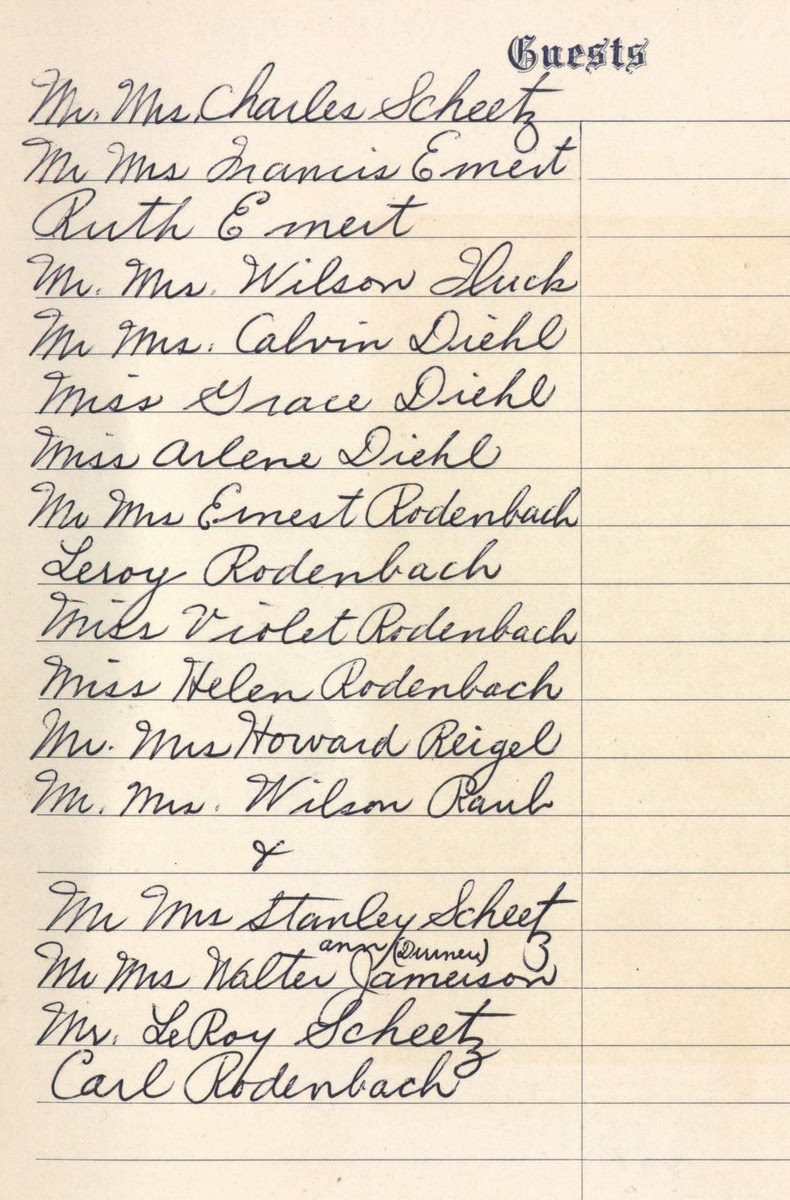 Guests
Mr. Mrs. Charles Scheetz
Mr Mrs Francis Emert
Ruth Emert
Mr. Mrs. Wilson Fluck
Mr Mrs. Calvin Diehl
Miss Grace Diehl
Miss Arlene Diehl
Mr Mrs Ernest Rodenbach
Leroy Rodenbach
Miss Violet Rodenbach
Miss Helen Rodenbach
Mr. Mrs Howard Reigel
Mr. Mrs. Wilson Raub
&
Mr Mrs Stanley Scheetz
ann
Mr Mrs Walter Jamerson
Mr. LeRoy Scheetz
Carl Rodenbach